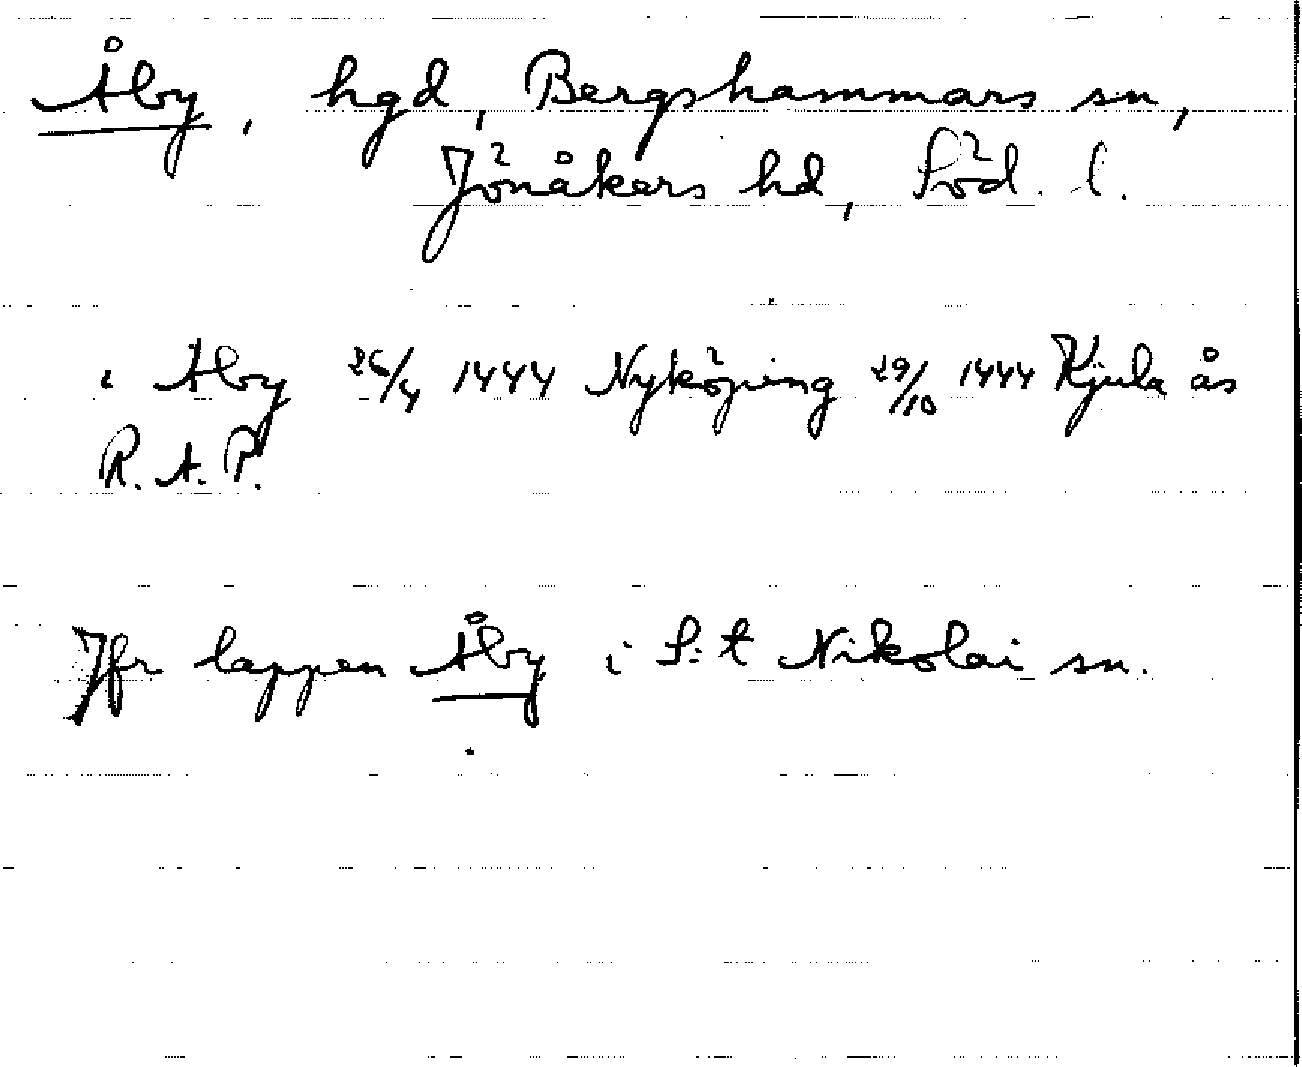 Åby, hgd, Bergshammars sn,
Jönåkers hd, Söd. l.
i Aby 26/4 1444 Nyköping 29/10 1444 Kjula ås
R. A. P.
Jfr lappen Åby i S:t Nikolai sn.